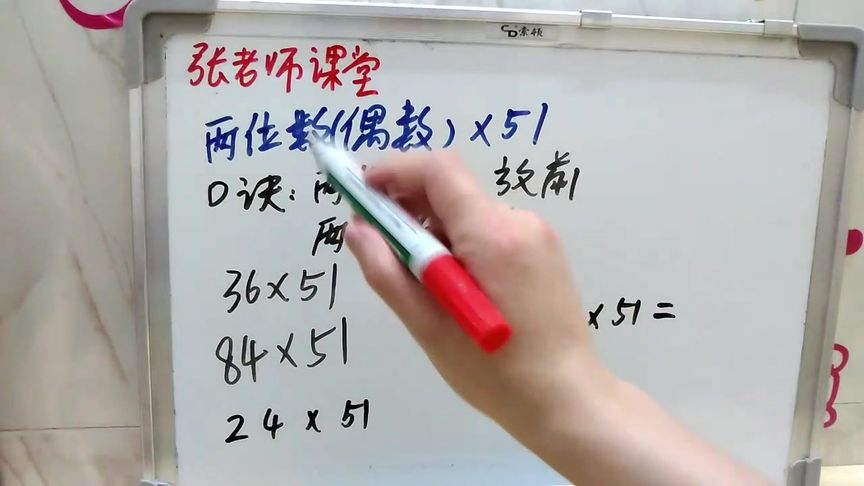 张老师课堂
两位数(偶数)×51
口诀:两 放前
两
36×51
84×51
24×51
×51=